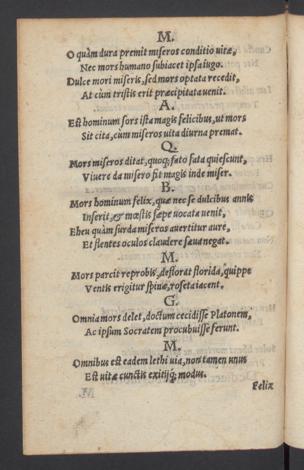 M.
O quàm dura premit miseros conditio uitæ,
Nec mors humano subiacet ipsa iugo.
Dulce mori miseris, sed mors optata recedit,
At cùm tristis erit præcipitata uenit.
A.
Est hominum sors ista magis felicibus, ut mors
Sit cita, cùm miseros uita diurna premat.
Q.
Mors miseros ditat, quoq; fato fata quiescunt,
Viuere da misero sit magis inde miser.
B.
Mors hominum felix, quæ nec se dulcibus annis
Inserit, & mœstis sæpe uocata uenit,
Eheu quàm surda miseros auertitur aure,
Et flentes oculos claudere sæua negat.
M.
Mors parcit reprobis, deflorat florida, quippe
Ventis erigitur spina, roseta iacent.
G.
Omnia mors delet, doctum cecidisse Platonem,
Ac ipsum Socratem procubuisse ferunt.
M.
Omnibus est eadem lethi uia, non tamen unus
Est uitæ cunctis exitijq; modus.
Felix